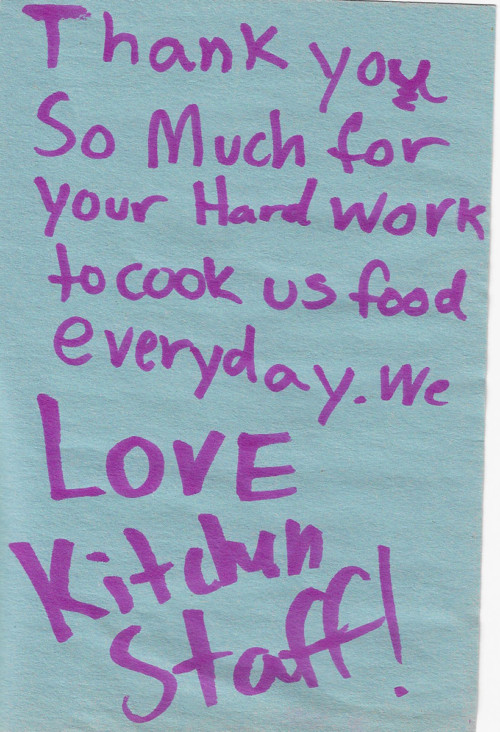 Thank you
So Much for
your Hard work
to cook us food
everyday. We
LOVE
Kitchen
Staff!